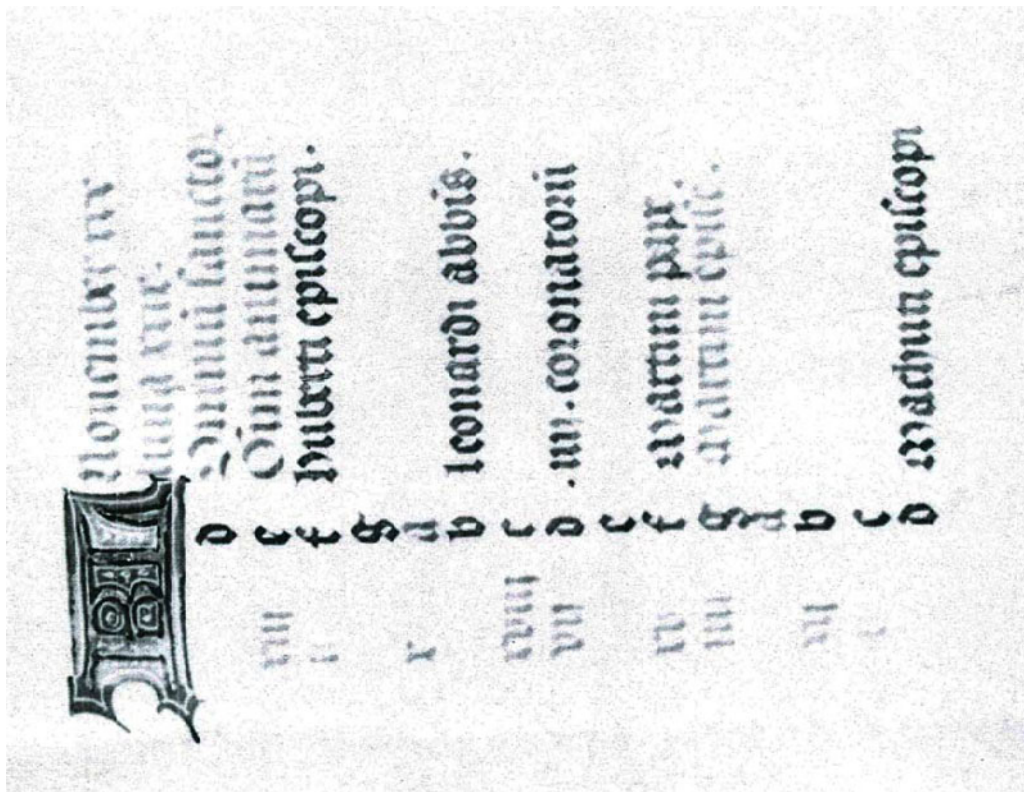 KL Nouember xxx
luna xxix.
d Omniū sancto.
xiii e Oim animarū
f huberti episcopi.
g
x a
b leonardi abbis.
xviii c
vii d .iiij. coronatorū
e
xv f Martini pape
iiii g Martini episc.
a
xii b
c
d Machuti episcopi